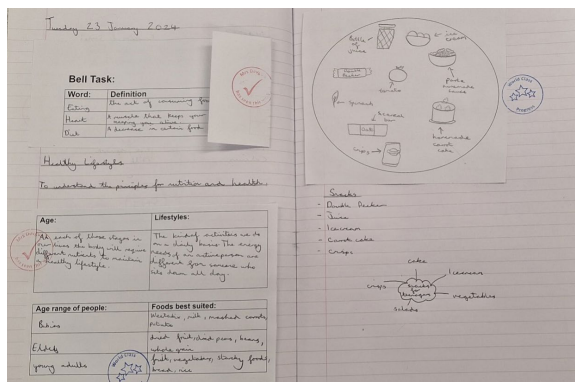 Tuesday 23 January 2024
Bell Task:
Word: Definition
Eating the act of consuming food
Heart A muscle that keeps your
keeping you alive
Diet A decrease in certain food
Healthy Lifestyles
To understand the principles for nutrition and health.
Age:
At each of those stages in
our lives the body will require
different nutrients to maintain
a healthy lifestyle
Lifestyles:
The kind of activities we do
on a daily basis The energy
needs of an active person are
different from someone who
sits down all day.
Age range of people: Foods best suited:
Babies
Weetabix, milk, mashed carrots,
potatoes
Elders
dried fruit, peas, beans,
whole grain
young adults
fruit, vegetables, starchy foods,
bread, rice
World Class
Bottle of juice
ice cream
Double Decker
tomato
Pasta
homemade
sauce
bar
homemade
carrot
cake
crisps
World Class
Snacks
- Double Decker
- Juice
- Icecream
- Carrot cake
- Crisps
snacks for teenagers
cake
Icecream
vegetables
salads
crisps